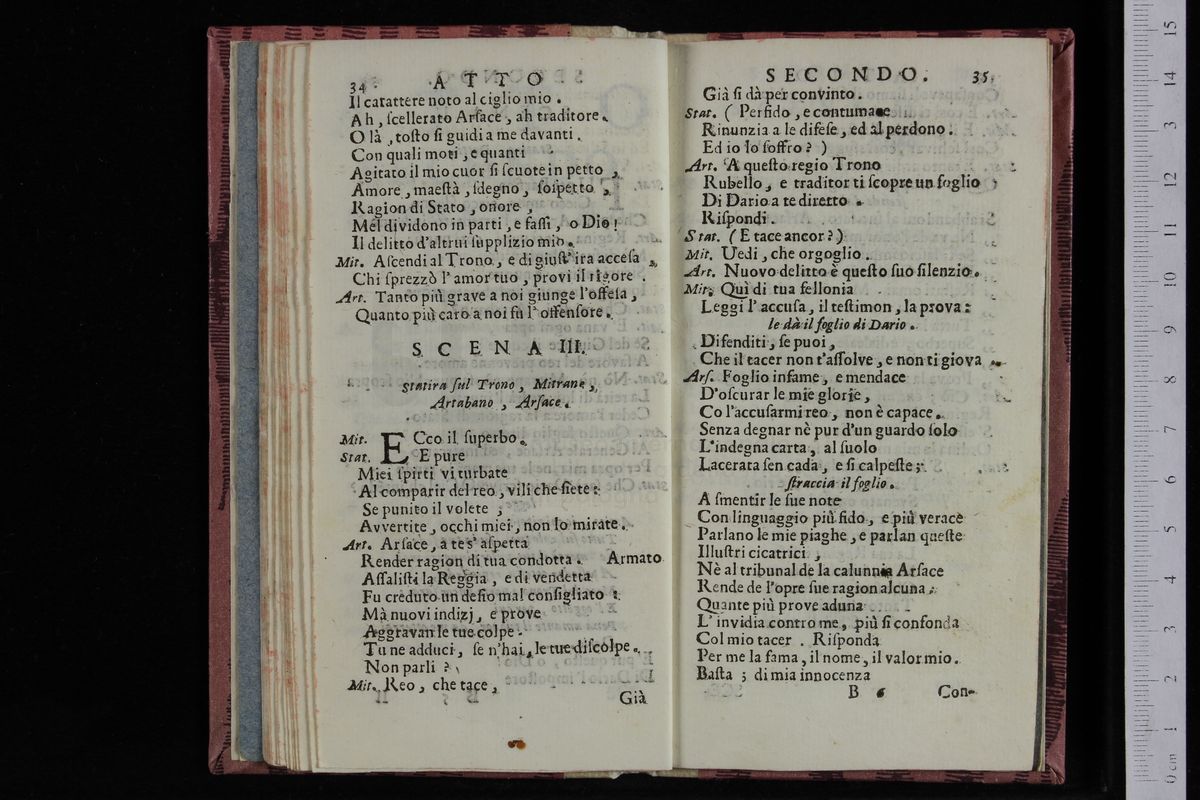 34 ATTO
Il carattere noto al ciglio mio.
Ah, ſcellerato Arſace, ah traditore.
O là, toſto ſi guidi a me davanti.
Con quali moti, e quanti
Agitato il mio cuor ſi ſcuote in petto,
Amore, maeſtà, ſdegno, ſoſpetto,
Ragion di Stato, onore,
Mel dividono in parti, e faſſi, o Dio!
Il delitto d'altrui ſupplizio mio.
Mit. Aſcendi al Trono, e di giuſt' ira acceſa
Chi ſprezzò l' amor tuo, provi il rigore.
Art. Tanto più grave a noi giunge l'offeſa,
Quanto più caro a noi fù l' offenſore.
SCENA III.
Statira ſul Trono, Mitrane,
Artabano, Arſace.
Mit. ECco il ſuperbo.
Stat. E pure
Miei ſpirti vi turbate
Al comparir del reo, vili che ſiete:
Se punito il volete,
Avvertite, occhi miei, non lo mirate.
Art. Arſace, a te s' aſpetta
Render ragion di tua condotta. Armato
Aſſaliſti la Reggia, e di vendetta
Fu creduto un deſio mal conſigliato:
Mà nuovi indizj, e prove
Aggravan le tue colpe.
Tu ne adduci, ſe n'hai, le tue diſcolpe.
Non parli?
Mit. Reo, che tace,
Già
SECONDO. 35
Già ſi dà per convinto.
Stat. (Perfido, e contumace
Rinunzia a le difeſe, ed al perdono.
Ed io lo ſoffro?)
Art. A queſto regio Trono
Rubello, e traditor ti ſcopre un foglio
Di Dario a te diretto.
Riſpondi.
Stat. (E tace ancor?)
Mit. Uedi, che orgoglio.
Art. Nuovo delitto è queſto ſuo ſilenzio.
Mit. Quì di tua fellonia
Leggi l' accuſa, il teſtimon, la prova:
le dà il foglio di Dario.
Difenditi, ſe puoi,
Che il tacer non t'aſſolve, e non ti giova
Arſ. Foglio infame, e mendace
D'oſcurar le mie glorie,
Co l'accuſarmi reo, non è capace.
Senza degnar nè pur d'un guardo ſolo
L'indegna carta, al ſuolo
Lacerata ſen cada, e ſi calpeſte;
ſtraccia il foglio.
A ſmentir le ſue note
Con linguaggio più fido, e più verace
Parlano le mie piaghe, e parlan queſte
Illuſtri cicatrici,
Nè al tribunal de la calunnia Arſace
Rende de l'opre ſue ragion alcuna;
Quante più prove aduna
L' invidia contro me, più ſi confonda
Col mio tacer. Riſponda
Per me la fama, il nome, il valor mio.
Baſta; di mia innocenza
B 6 Con-